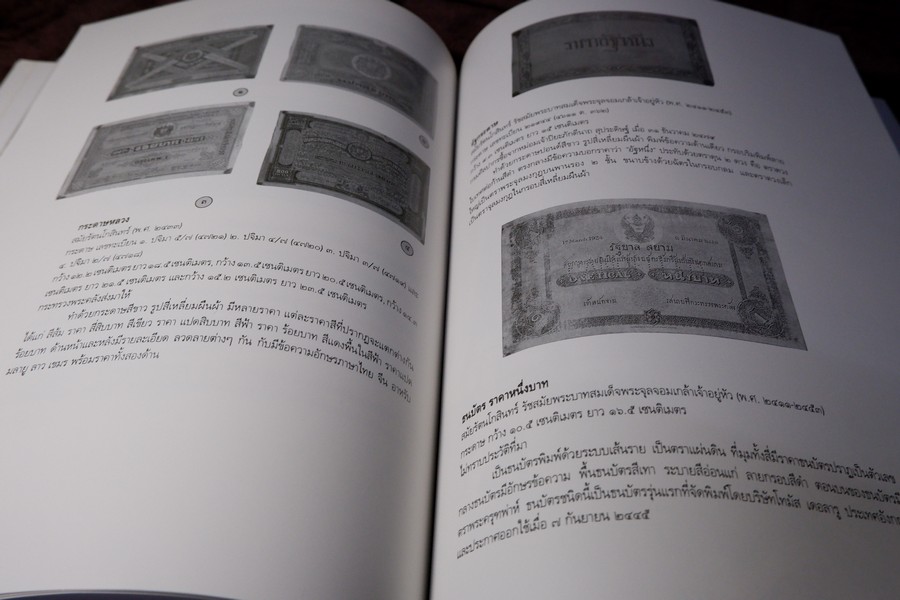 ๓
กระดาษหลวง
สมัยรัตนโกสินทร์ (พ.ศ. ๒๔๓๓)
กระดาษ เลขทะเบียน ๑. ปจิมา ๕/๗ (๔๗๒๑) ๒. ปจิมา ๔/๗ (๔๗๒๐) ๓. ปจิมา ๓/๗ (๔๗๑๙) และ
๔. ปจิมา ๒/๗ (๔๗๑๘)
กว้าง ๑๒.๒ เซนติเมตร ยาว ๑๘.๕ เซนติเมตร, กว้าง ๑๓.๕ เซนติเมตร ยาว ๒๐.๕ เซนติเมตร, กว้าง ๑๔.๓
เซนติเมตร ยาว ๒๑.๕ เซนติเมตร และกว้าง ๑๕.๒ เซนติเมตร ยาว ๒๓.๕ เซนติเมตร
กระทรวงพระคลังส่งมาให้
ทำด้วยกระดาษสีขาว รูปสี่เหลี่ยมผืนผ้า มีหลายราคา แต่ละราคาสีที่ปรากฏจะแตกต่างกัน
ได้แก่ สีส้ม ราคา สี่สิบบาท สีเขียว ราคา แปดสิบบาท สีฟ้า ราคา ร้อยบาท สีแดงพื้นในสีฟ้า ราคาแปด
ร้อยบาท ด้านหน้าและหลังมีรายละเอียด ลวดลายต่างๆ กัน กับมีข้อความอักษรภาษาไทย จีน อาหรับ
มลายู ลาว เขมร พร้อมราคาทั้งสองด้าน
อัฐกระดาษ
สมัยรัตนโกสินทร์ รัชสมัยพระบาทสมเด็จพระจุลจอมเกล้าเจ้าอยู่หัว (พ.ศ. ๒๔๑๑-๒๔๕๓)
ทำด้วยกระดาษปอนด์สีขาว รูปสี่เหลี่ยมผืนผ้า พิมพ์ข้อความด้านเดียว
เป็นตราพระจุลมงกุฎในกรอบสี่เหลี่ยมผืนผ้า
รัฐบาล สยาม
TICAL
หนึ่งบาท
ธนบัตร ราคาหนึ่งบาท
สมัยรัตนโกสินทร์ รัชสมัยพระบาทสมเด็จพระจุลจอมเกล้าเจ้าอยู่หัว (พ.ศ. ๒๔๑๑-๒๔๕๓)
กระดาษ กว้าง ๑๐.๕ เซนติเมตร ยาว ๑๖.๕ เซนติเมตร
ไม่ทราบประวัติที่มา
เป็นธนบัตรพิมพ์ด้วยระบบเส้นราย เป็นตราแผ่นดิน ที่มุมทั้งสี่มีราคาธนบัตรปรากฏเป็นตัวเลข
กลางธนบัตรมีอักษรข้อความ พื้นธนบัตรสีเทา ระบายสีอ่อนแก่ ลายกรอบสีดำ ตอนบนของธนบัตรมี
ตราพระครุฑพ่าห์ ธนบัตรชนิดนี้เป็นธนบัตรรุ่นแรกที่จัดพิมพ์โดยบริษัทโทมัส เดอลารู ประเทศอังกฤษ
และประกาศออกใช้เมื่อ ๗ กันยายน ๒๔๔๕